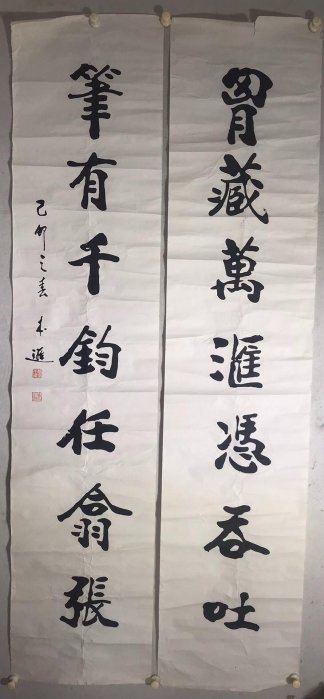 胷藏萬滙憑吞吐
筆有千鈞任翕張
己卯之春